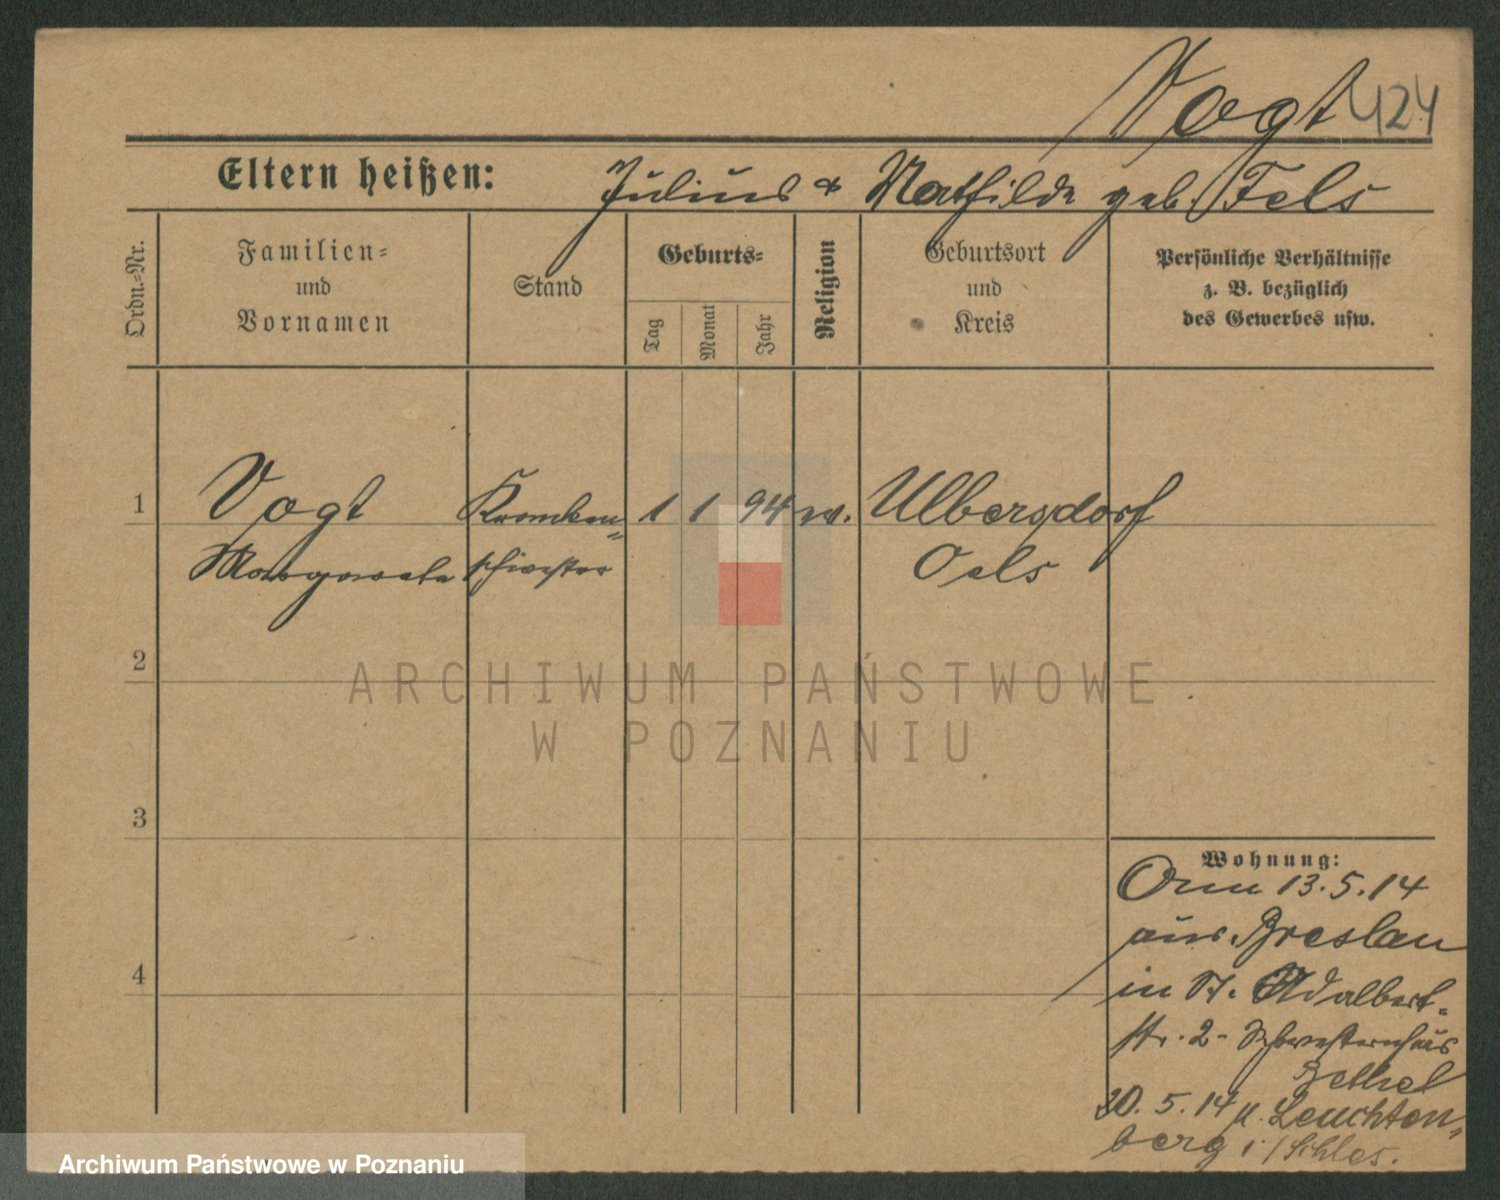 Vogt 424
Eltern heißen: Julius & Mathilde geb. Fels
Ordn.=Nr.
Familien=
und
Vornamen
Stand
Geburts=
Tag
Monat
Jahr
Religion
Geburtsort
und
Kreis
Persönliche Verhältnisse
z. B. bezüglich
des Gewerbes usw.
1 Vogt Kranken= 1 1 94 w. Ulbersdorf
Margarete schwester Oels
2
ARCHIWUM PAŃSTWOWE
W POZNANIU
3
4
Wohnung:
13.5.14
aus Breslau
in St. Adalbert-
str. 2- Schwesternhaus
Bethel
20.5.14 n. Leuchten=
berg i/Schles.
Archiwum Państwowe w Poznaniu